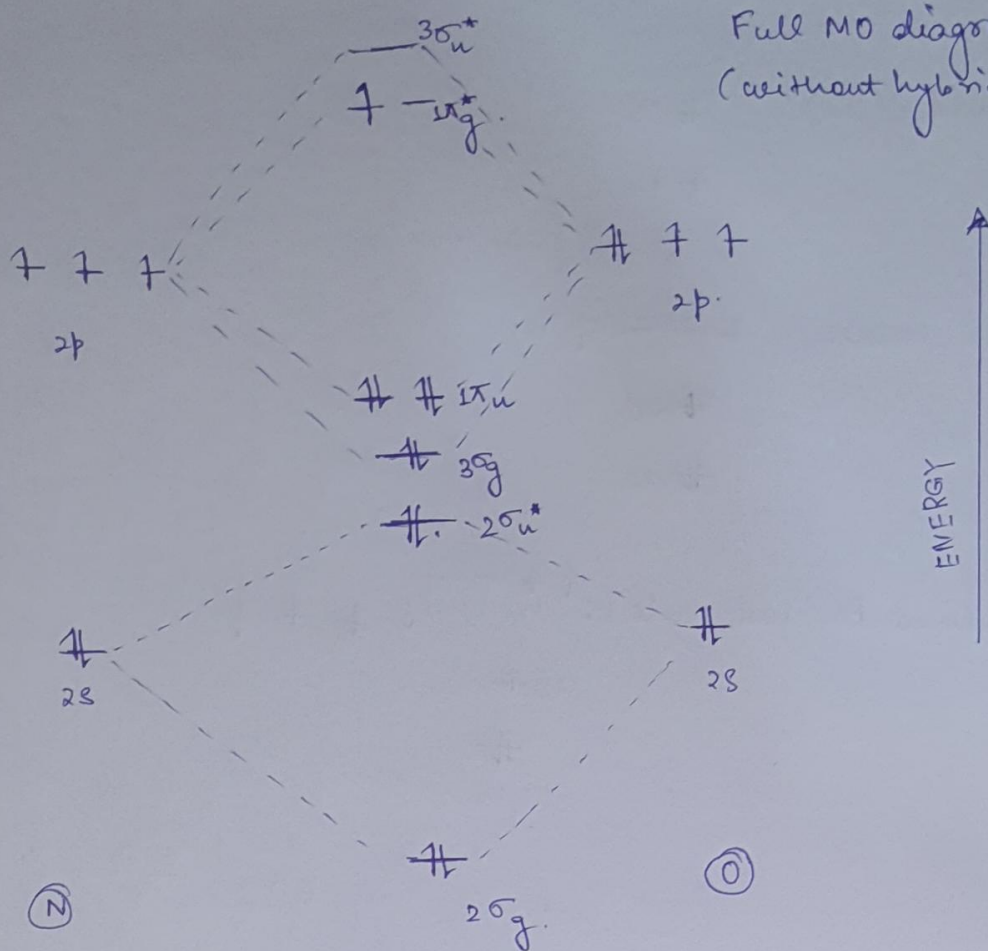 Full MO diagr
(without hybri
3σu*
1πg*
2p
2p
1πu
3σg
2σu*
ENERGY
2s
2s
2σg
N
O